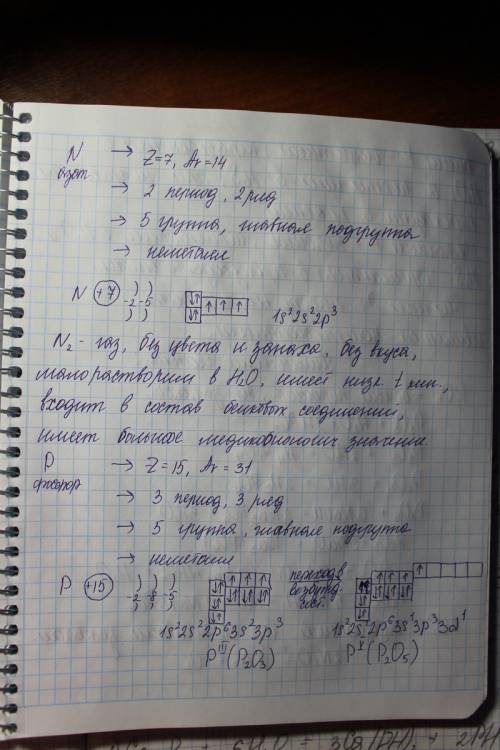 N → Z=7, Ar=14
азот → 2 период, 2 ряд
→ 5 группа, главная подгруппа
→ неметалл
N +7 ) ) -2 -5 ) ) 1s²2s²2p³
N₂ - газ, без цвета и запаха, без вкуса,
малорастворим в H₂O, имеет низк. t кип.,
входит в состав белковых соединений,
имеет большое медикобиологич значение
P → Z=15, Ar=31
фосфор → 3 период, 3 ряд
→ 5 группа, главная подгруппа
→ неметалл
P +15 ) ) ) -2 -8 -5 ) ) ) переход в возбужд. сост.
1s²2s²2p⁶3s²3p³ 1s²2s²2p⁶3s¹3p³3d¹
P^III (P₂O₃) P^V (P₂O₅)